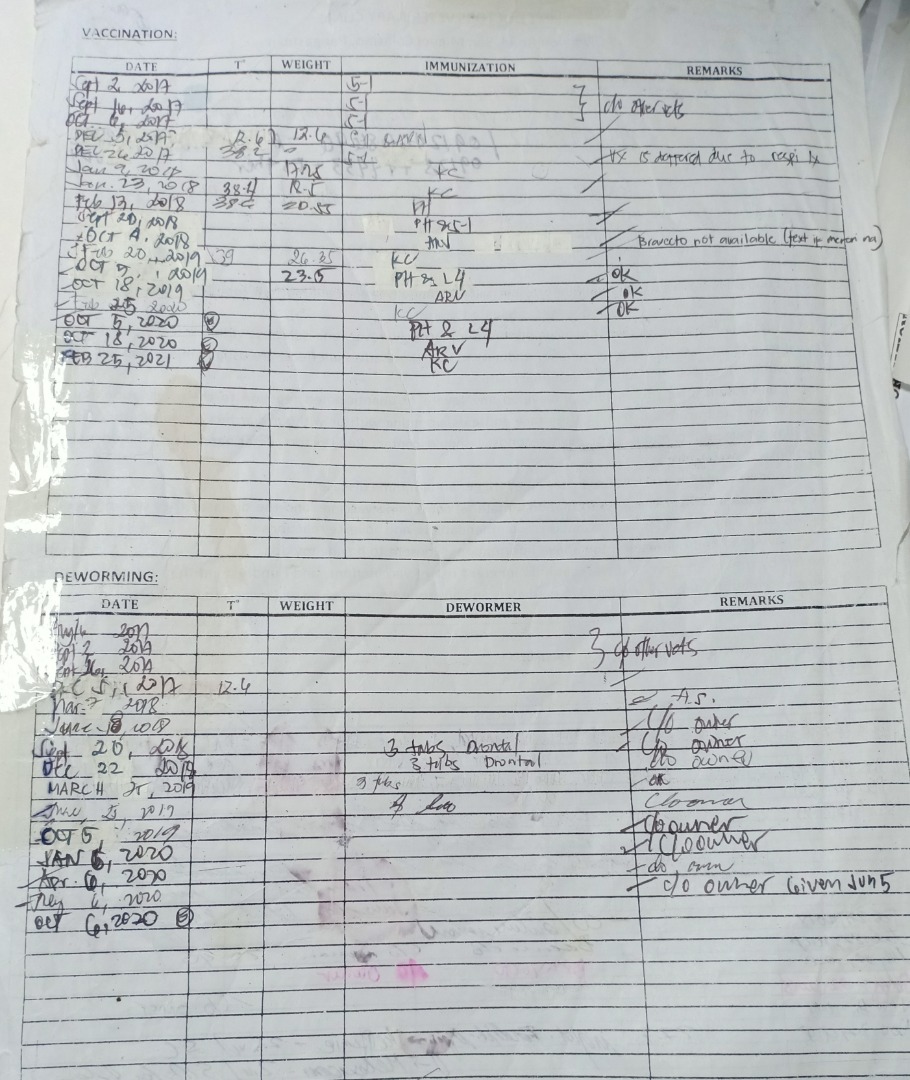 VACCINATION:
DATE T° WEIGHT IMMUNIZATION REMARKS
Sept 2, 2017 5-1
Sept 16, 2017 5-1 c/o other vets
Oct 6, 2017 5-1
DEC 5, 2017 12.6
DEC 26 2017 5-1 VX is deferred due to respi tx
Jan. 9, 2018 17.25 KC
Jan. 23, 2018 38.4 KC
Feb 13, 2018 20.55
Sept 20, 2018 PH & 5-1
OCT 4, 2018 ARV Bravecto not available (text if meron na)
Feb 20, 2019 39 26.35 KC
OCT 5, 2019 23.5 PH & L4 OK
OCT 18, 2019 ARV OK
Feb 25 2020 KC OK
OCT 5, 2020 PH & L4
OCT 18, 2020 ARV
FEB 25, 2021 KC
DEWORMING:
DATE T° WEIGHT DEWORMER REMARKS
2017
Sept 2 2017 c/o other vets
Sept 16, 2017
DEC 5, 2017 12.4
Mar. 7 2018 A.S.
June 2018 c/o owner
Sept 20, 2018 3 tabs Drontal c/o owner
Dec 22 2018 3 tabs Drontal c/o owner
MARCH 25, 2019 3 tabs OK
June, 5, 2019 c/o owner
OCT 5, 2019 c/o owner
JAN 6, 2020 c/o owner
Apr. 6, 2020 c/o own
2020 c/o owner Given Jun 5
OCT 6, 2020